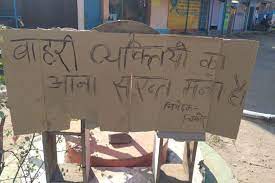 बाहरी व्यक्तियों का
आना सख्त मना है
निवेदक-